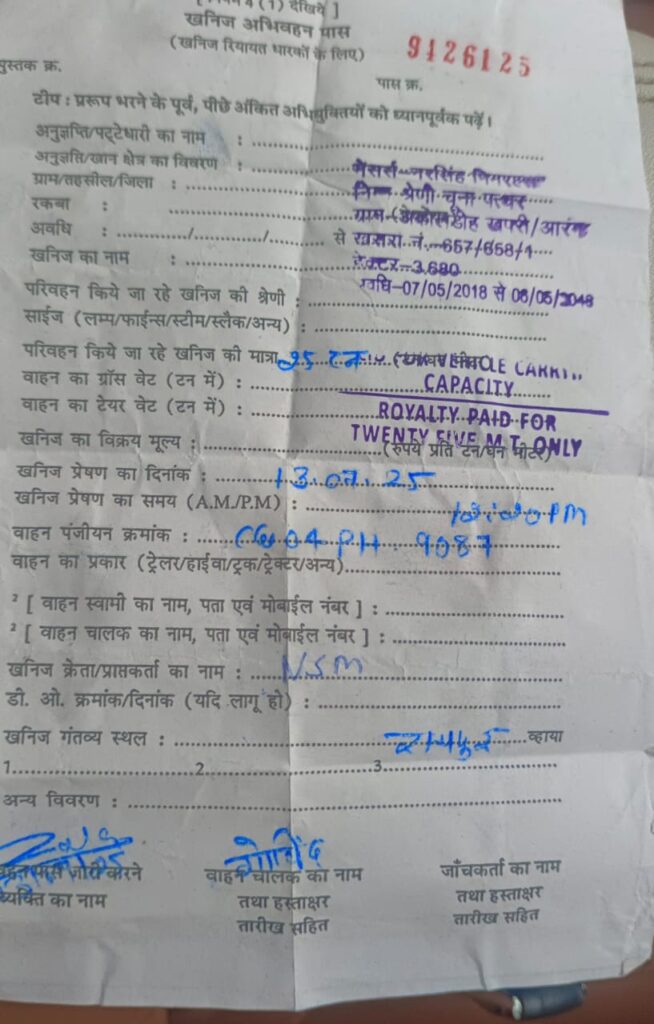 4 (1) देखिये ]
खनिज अभिवहन पास
(खनिज रियायत धारकों के लिए)
9126125
पुस्तक क्र.
पास क्र.
टीप : प्ररूप भरने के पूर्व, पीछे अंकित अभियुक्तियों को ध्यानपूर्वक पढ़ें।
अनुज्ञप्ति/पट्टेधारी का नाम :
अनुज्ञप्ति/खान क्षेत्र का विवरण : मेसर्स नरसिंह मिनरल्स
ग्राम/तहसील/जिला : निम्न श्रेणी चूना पत्थर
रकबा : ग्राम खपरी/आरंग
अवधि : ......../......../........ से खसरा नं.-657/658/1
खनिज का नाम : हेक्टर-3.680
परिवहन किये जा रहे खनिज की श्रेणी : अवधि-07/05/2018 से 06/05/2048
साईज (लम्प/फाईन्स/स्टीम/स्लैक/अन्य) :
परिवहन किये जा रहे खनिज की मात्रा 25 टन VEHICLE
वाहन का ग्रॉस वेट (टन में) : CAPACITY
वाहन का टेयर वेट (टन में) : ROYALTY PAID FOR
TWENTY FIVE M.T. ONLY
खनिज का विक्रय मूल्य : (रुपये प्रति टन/घन मीटर)
खनिज प्रेषण का दिनांक : 13.07.25
खनिज प्रेषण का समय (A.M./P.M) : PM
वाहन पंजीयन क्रमांक : CG 04 PH 9087
वाहन का प्रकार (ट्रेलर/हाईवा/ट्रक/ट्रेक्टर/अन्य)
² [ वाहन स्वामी का नाम, पता एवं मोबाईल नंबर ] :
² [ वाहन चालक का नाम, पता एवं मोबाईल नंबर ] :
खनिज क्रेता/प्राप्तकर्ता का नाम : NSM
डी. ओ. क्रमांक/दिनांक (यदि लागू हो) :
खनिज गंतव्य स्थल : रायपुर व्हाया
1. 2. 3.
अन्य विवरण :
जारी करने वाहन चालक का नाम जाँचकर्ता का नाम
व्यक्ति का नाम तथा हस्ताक्षर तथा हस्ताक्षर
तारीख सहित तारीख सहित